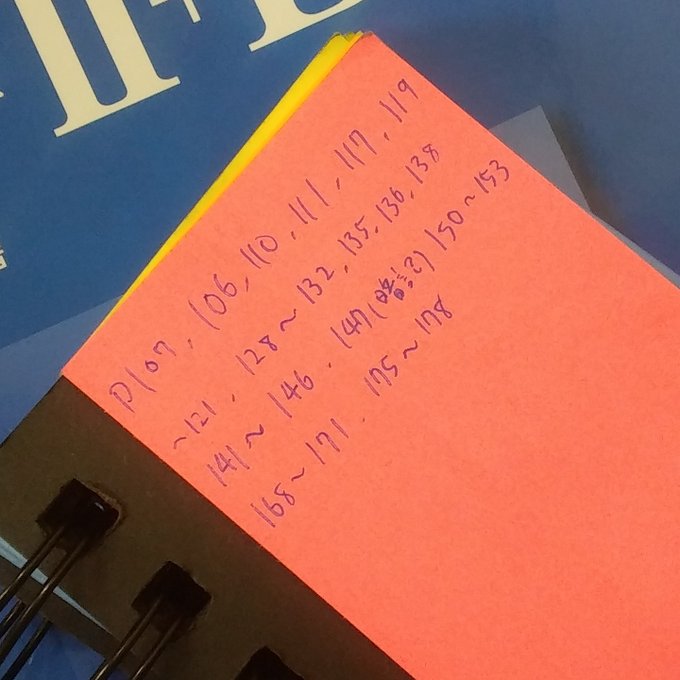 P107, 106, 110, 111, 117, 119
~121, 128~132, 135, 136, 138
141~146, 147( ) 150~153
168~171. 175~178